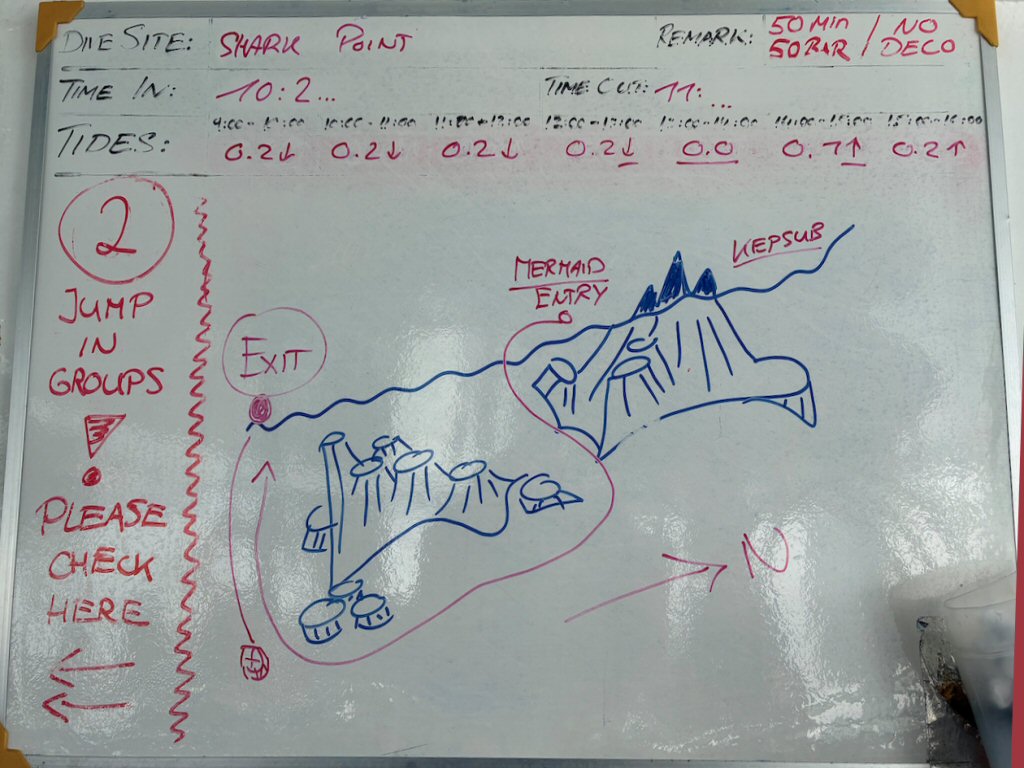 DIVE SITE: SHARK POINT REMARK: 50 MIN / NO
50 BAR DECO
TIME IN: 10:2... TIME OUT: 11:...
9:00-10:00 10:00-11:00 11:00-12:00 12:00-13:00 13:00-14:00 14:00-15:00 15:00-16:00
TIDES: 0.2↓ 0.2↓ 0.2↓ 0.2↓ 0.0 0.1↑ 0.2↑
2
JUMP
IN
GROUPS
!
PLEASE
CHECK
HERE
EXIT
MERMAID
ENTRY
KEPSUB
N